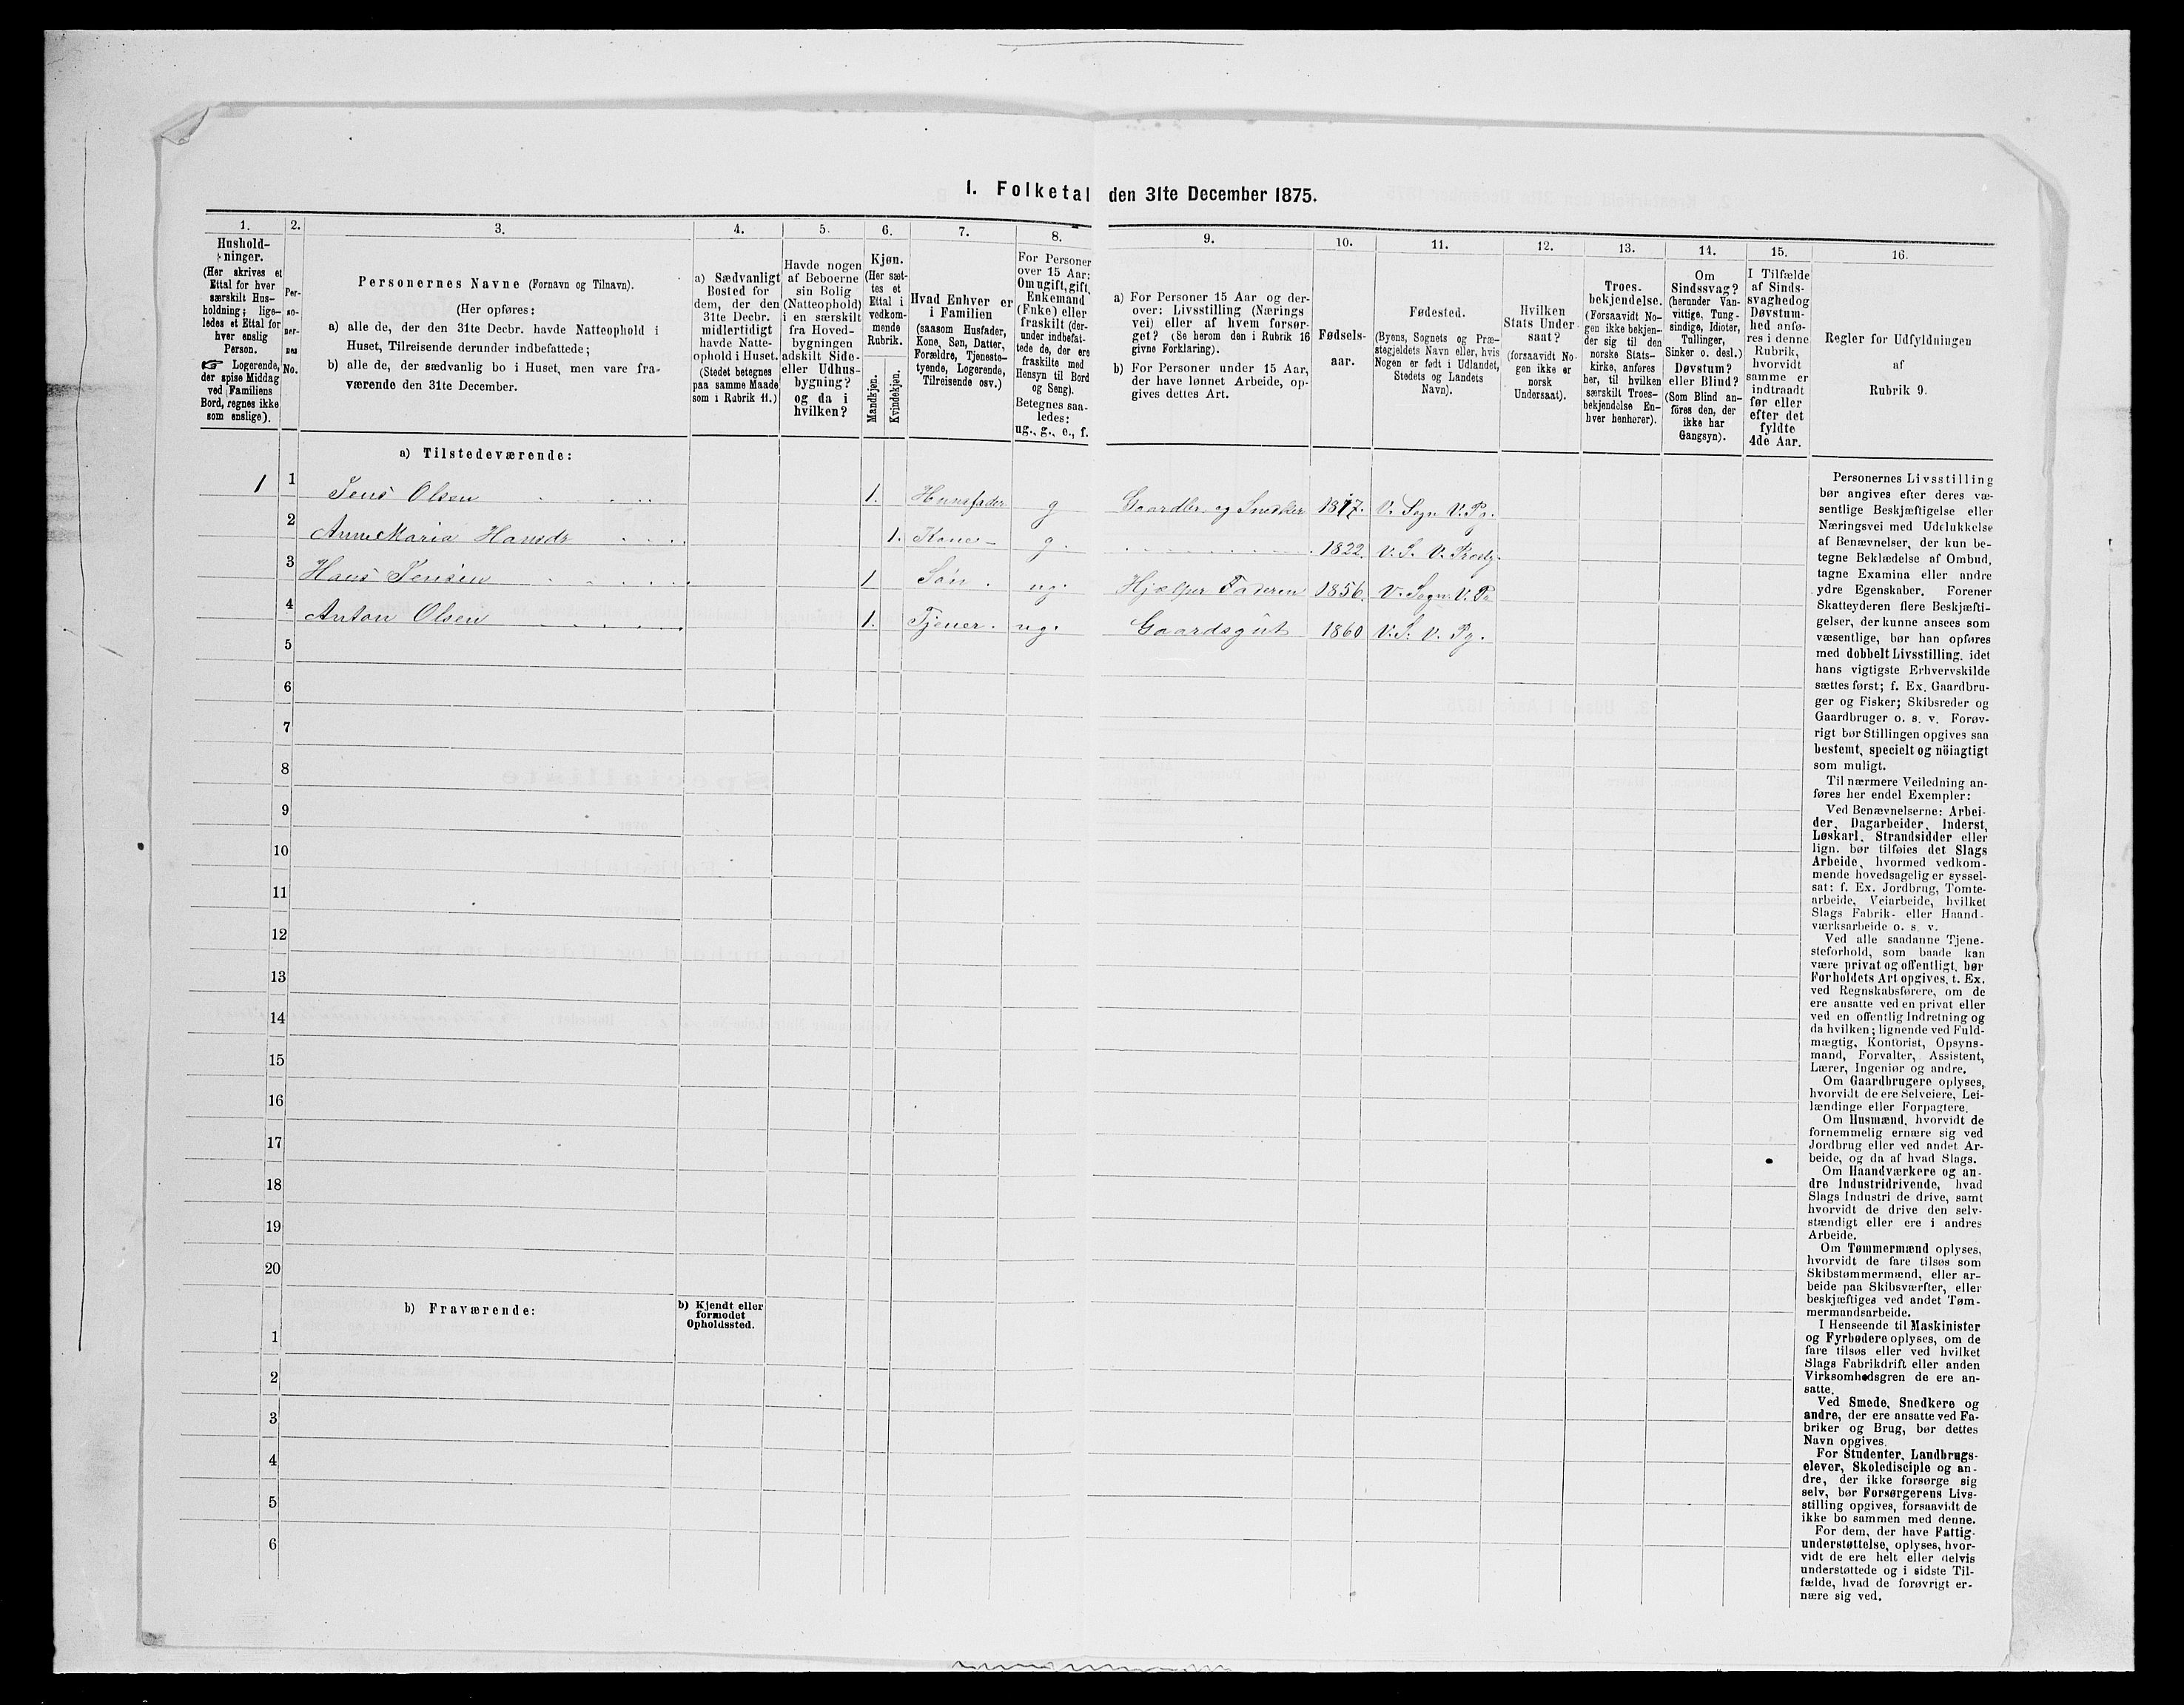 I. Folketal den 31te December 1875.
1. 2. 3. 4. 5. 6. 7. 8. 9. 10. 11. 12. 13. 14. 15. 16.
Hushold-
ninger.
(Her skrives et
Ettal for hver
særskilt Hus-
holdning; lige-
ledes et Ettal for
hver enslig
Person.
☞ Logerende,
der spise Middag
ved Familiens
Bord, regnes ikke
som enslige).
Per-
so-
ner-
nes
No.
Personernes Navne (Fornavn og Tilnavn).
(Her opføres:
a) alle de, der den 31te Decbr. havde Natteophold i
Huset, Tilreisende derunder indbefattede;
b) alle de, der sædvanlig bo i Huset, men vare fra-
værende den 31te December.
a) Sædvanligt
Bosted for
dem, der den
31te Decbr.
midlertidigt
havde Natte-
ophold i Huset.
(Stedet betegnes
paa samme Maade
som i Rubrik 11.)
Havde nogen
af Beboerne
sin Bolig
(Natteophold)
i en særskilt
fra Hoved-
bygningen
adskilt Side-
eller Udhus-
bygning?
og da i
hvilken?
Kjøn.
(Her sæt-
tes et
Ettal i
vedkom-
mende
Rubrik.
Mandkjøn.
Kvindekjøn.
Hvad Enhver er
i Familien
(saasom Husfader,
Kone, Søn, Datter,
Forældre, Tjeneste-
tyende, Logerende,
Tilreisende osv.)
For Personer
over 15 Aar:
Om ugift, gift,
Enkemand
(Enke) eller
fraskilt (der-
under indbefat-
tede de, der ere
fraskilte med
Hensyn til Bord
og Seng).
Betegnes saa-
ledes:
ug., g., e., f.
a) For Personer 15 Aar og der-
over: Livsstilling (Nærings
vei) eller af hvem forsør-
get? (Se herom den i Rubrik 16
givne Forklaring).
b) For Personer under 15 Aar,
der have lønnet Arbeide, op-
gives dettes Art.
Fødsels-
aar.
Fødested.
(Byens, Sognets og Præ-
stegjeldets Navn eller, hvis
Nogen er født i Udlandet,
Stedets og Landets
Navn).
Hvilken
Stats Under-
saat?
(forsaavidt No-
gen ikke er
norsk
Undersaat).
Troes-
bekjendelse.
(Forsaavidt No-
gen ikke bekjen-
der sig til den
norske Stats-
kirke, anføres
her, til hvilken
særskilt Troes-
bekjendelse En-
hver henhører).
Om
Sindssvag?
(herunder Van-
vittige, Tung-
sindige, Idioter,
Tullinger,
Sinker o. desl.)
Døvstum?
eller Blind?
(Som Blind an-
føres den, der
ikke har
Gangsyn).
I Tilfælde
af Sinds-
svaghedog
Døvstum-
hed anfø-
res i denne
Rubrik,
hvorvidt
samme er
indtraadt
før eller
efter det
fyldte
4de Aar.
Regler for Udfyldningen
af
Rubrik 9.
a) Tilstedeværende:
1 1 Jens Olsen 1. Huusfader g Gaardbr. og Snedker 1817. V. Sogn V. Pg.
2 Anne Maria Hansdr 1. Kone g. 1822. V. S. V. Prg.
3 Hans Jensen 1 Søn. ug. Hjælper Faderen 1856. V. Sogn V. Pg
4 Anton Olsen 1. Tjener. ug. Gaardsgut 1860 V. S. V. Pg.
5
6
7
8
9
10
11
12
13
14
15
16
17
18
19
20
b) Fraværende:
b) Kjendt eller
formodet
Opholdssted.
1
2
3
4
5
6
Personernes Livsstilling
bør angives efter deres væ-
sentlige Beskjæftigelse eller
Næringsvei med Udelukkelse
af Benævnelser, der kun be-
tegne Beklædelse af Ombud,
tagne Examina eller andre
ydre Egenskaber. Forener
Skatteyderen flere Beskjæfti-
gelser, der kunne ansees som
væsentlige, bør han opføres
med dobbelt Livsstilling, idet
hans vigtigste Erhvervskilde
sættes først; f. Ex. Gaardbru-
ger og Fisker; Skibsreder og
Gaardbruger o. s. v. Forøv-
rigt bør Stillingen opgives saa
bestemt, specielt og nöiagtigt
som muligt.
Til nærmere Veiledning an-
føres her endel Exempler:
Ved Benævnelserne: Arbei-
der, Dagarbeider, Inderst,
Løskarl, Strandsidder eller
lign. bør tilføies det Slags
Arbeide, hvormed vedkom-
mende hovedsagelig er syssel-
sat: f. Ex. Jordbrug, Tomte-
arbeide, Veiarbeide, hvilket
Slags Fabrik- eller Haand-
værksarbeide o. s. v.
Ved alle saadanne Tjene-
steforhold, som baade kan
være privat og offentligt, bør
Forholdets Art opgives, t. Ex.
ved Regnskabsførere, om de
ere ansatte ved en privat eller
ved en offentlig Indretning og
da hvilken; lignende ved Fuld-
mægtig, Kontorist, Opsyns-
mand, Forvalter, Assistent,
Lærer, Ingeniør og andre.
Om Gaardbrugere oplyses,
hvorvidt de ere Selveiere, Lei-
lændinge eller Forpagtere.
Om Husmænd, hvorvidt de
fornemmelig ernære sig ved
Jordbrug eller ved andet Ar-
beide, og da af hvad Slags.
Om Haandværkere og an-
dre Industridrivende, hvad
Slags Industri de drive, samt
hvorvidt de drive den selv-
stændigt eller ere i andres
Arbeide.
Om Tømmermænd oplyses,
hvorvidt de fare tilsøs som
Skibstømmermænd, eller ar-
beide paa Skibsværfter, eller
beskjæftiges ved andet Tøm-
mermandsarbeide.
I Henseende til Maskinister
og Fyrbødere oplyses, om de
fare tilsøs eller ved hvilket
Slags Fabrikdrift eller anden
Virksomhedsgren de ere an-
satte.
Ved Smede, Snedkere og
andre, der ere ansatte ved Fa-
briker og Brug, bør dettes
Navn opgives.
For Studenter, Landbrugs-
elever, Skoledisciple og an-
dre, der ikke forsørge sig
selv, bør Forsørgerens Livs-
stilling opgives, forsaavidt de
ikke bo sammen med denne.
For dem, der have Fattig-
understøttelse, oplyses, hvor-
vidt de ere helt eller delvis
understøttede og i sidste Til-
fælde, hvad de forøvrigt er-
nære sig ved.